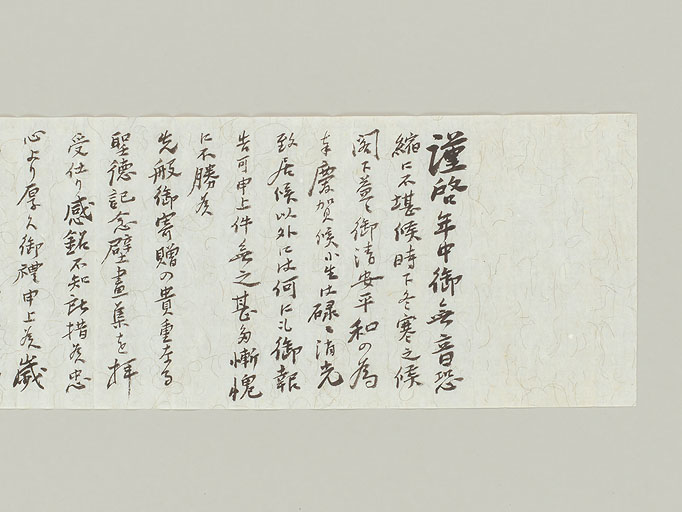 謹啓年中御無音恐
縮に不堪候時下冬寒之候
閣下益〻御清安平和の為
奉慶賀候小生は碌〻消光
致居候以外には何にも御報
告可申上件無之甚多慚愧
に不勝候
先般御寄贈の貴重なる
聖徳記念壁画集を拝
受仕り感銘不知所措候忠
心より厚く御禮申上候歳